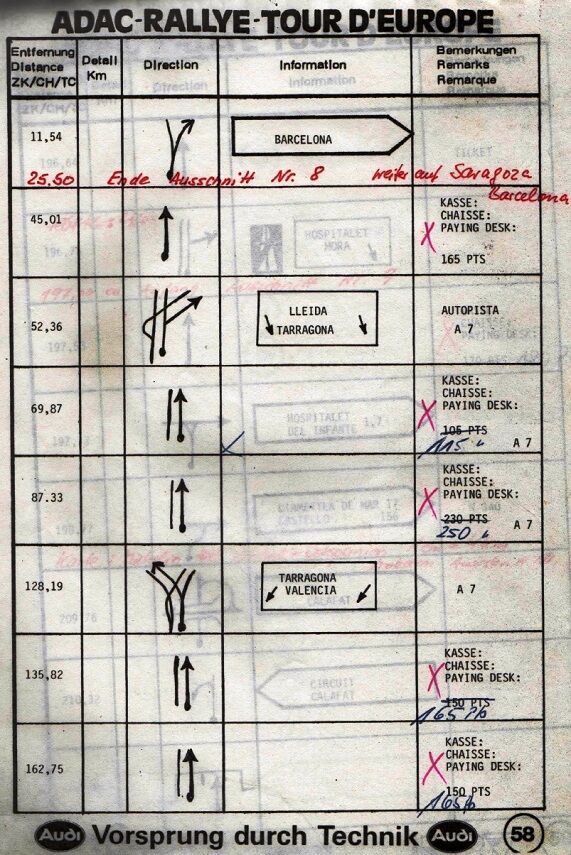 ADAC-RALLYE-TOUR D'EUROPE
Entfernung Distance ZK/CH/TC
Detail Km
Direction
Information
Bemerkungen Remarks Remarque
11,54
BARCELONA
25.50 Ende Ausschnitt Nr. 8 weiter auf Saragoza
Barcelona
45,01
KASSE:
CHAISSE:
PAYING DESK:
165 PTS
52,36
LLEIDA
TARRAGONA
AUTOPISTA
A 7
69,87
KASSE:
CHAISSE:
PAYING DESK:
105 PTS
115 "
A 7
87.33
KASSE:
CHAISSE:
PAYING DESK:
230 PTS
250 "
A 7
128,19
TARRAGONA
VALENCIA
A 7
135,82
KASSE:
CHAISSE:
PAYING DESK:
150 PTS
165
162,75
KASSE:
CHAISSE:
PAYING DESK:
150 PTS
165
Audi Vorsprung durch Technik Audi 58